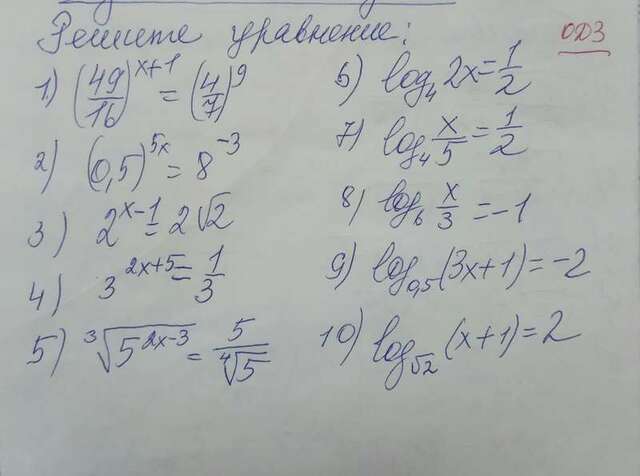 Решите уравнение:
ОДЗ
1) (49/16)^(x+1) = (4/7)^9
2) (0,5)^(5x) = 8^(-3)
3) 2^(x-1) = 2√2
4) 3^(2x+5) = 1/3
5) ³√(5^(2x-3)) = 5/⁴√5
6) log₄ 2x = 1/2
7) log₄ x/5 = 1/2
8) log₆ x/3 = -1
9) log₀,₅ (3x+1) = -2
10) log_√2 (x+1) = 2